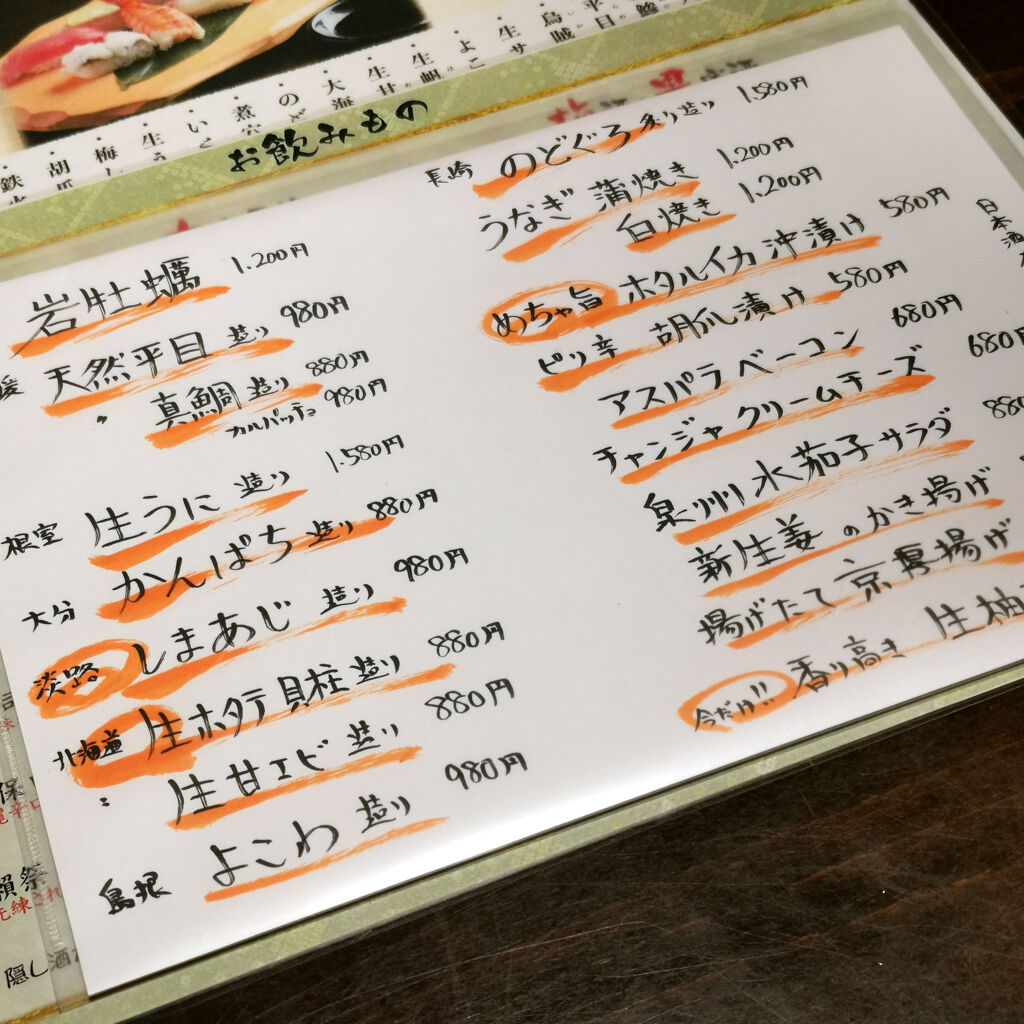 お飲みもの
岩牡蠣 1.200円
天然平目 造り 980円
〃 真鯛 造り 880円
カルパッチョ 980円
根室 生うに 造り 1.580円
大分 かんぱち 造り 880円
淡路 しまあじ 造り 980円
北海道 生ホタテ貝柱 造り 880円
〃 生甘エビ 造り 880円
島根 よこわ 造り 980円
長崎 のどぐろ 炙り造り 1.580円
うなぎ 蒲焼き 1.200円
白焼き 1.200円
めちゃ旨 ホタルイカ沖漬け 580円
ピリ辛 胡瓜し漬け 580円
アスパラベーコン 680円
チャンジャクリームチーズ 680円
泉州水茄子サラダ
新生姜のかき揚げ
揚げたて京厚揚げ
今だけ!! 香り高き 生柚
日本酒